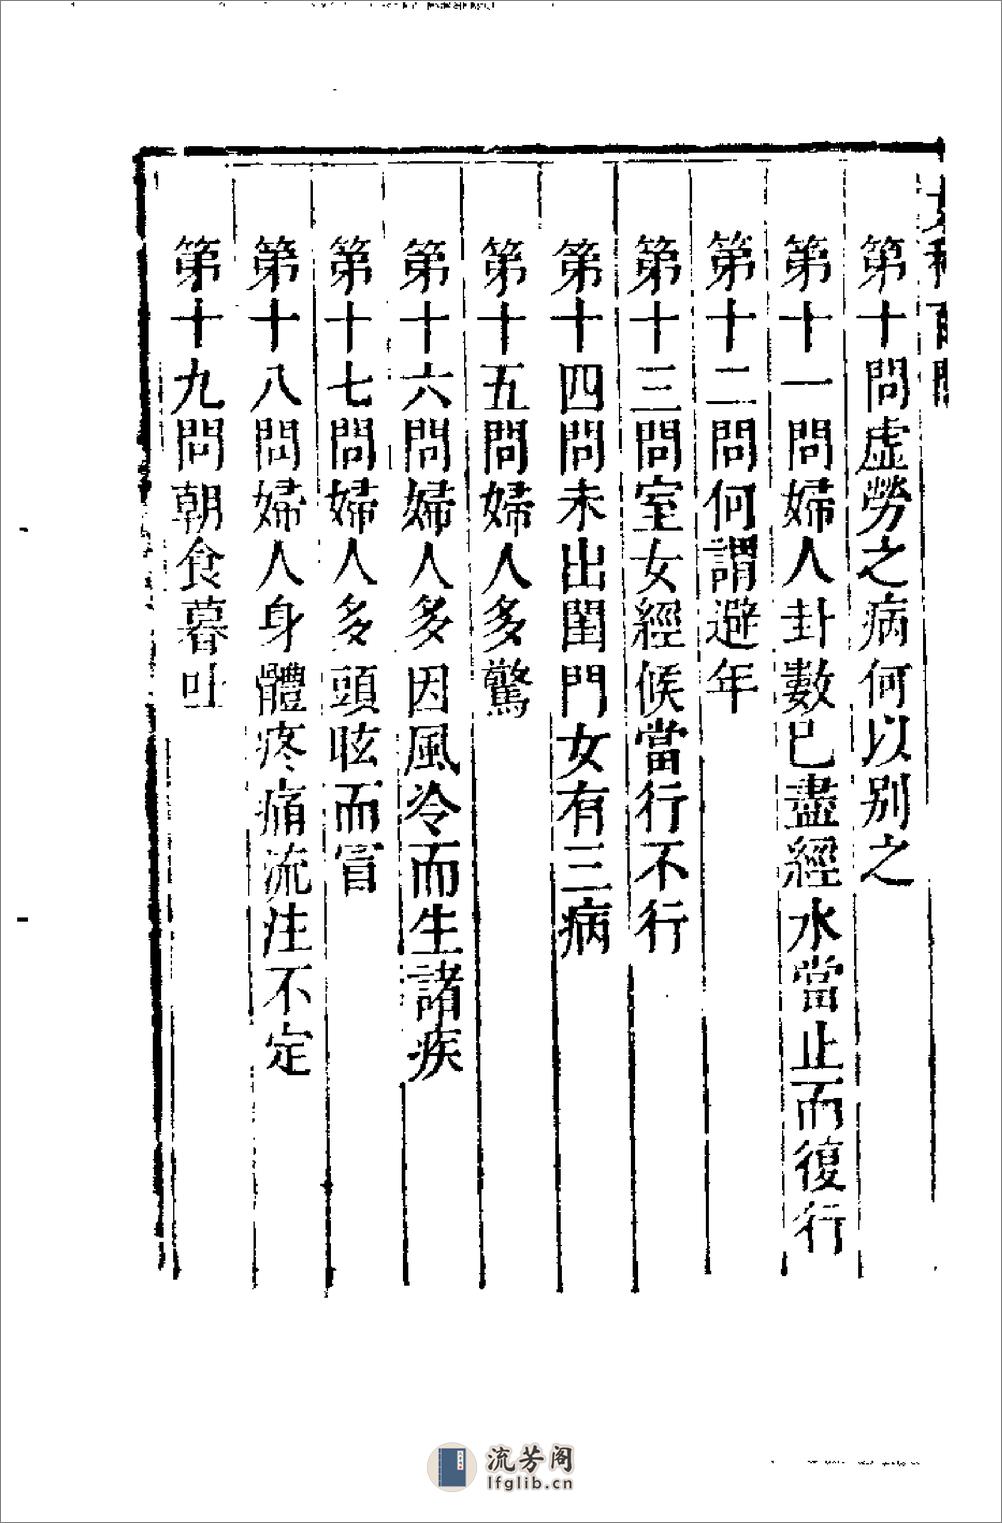 第十問虛勞之病何以别之
第十一問婦人卦數已盡經水當止而復行
第十二問何謂避年
第十三問室女經候當行不行
第十四問未出閨門女有三病
第十五問婦人多驚
第十六問婦人多因風冷而生諸疾
第十七問婦人多頭眩而冒
第十八問婦人身體疼痛流注不定
第十九問朝食暮吐
流芳阁
lfglib.cn